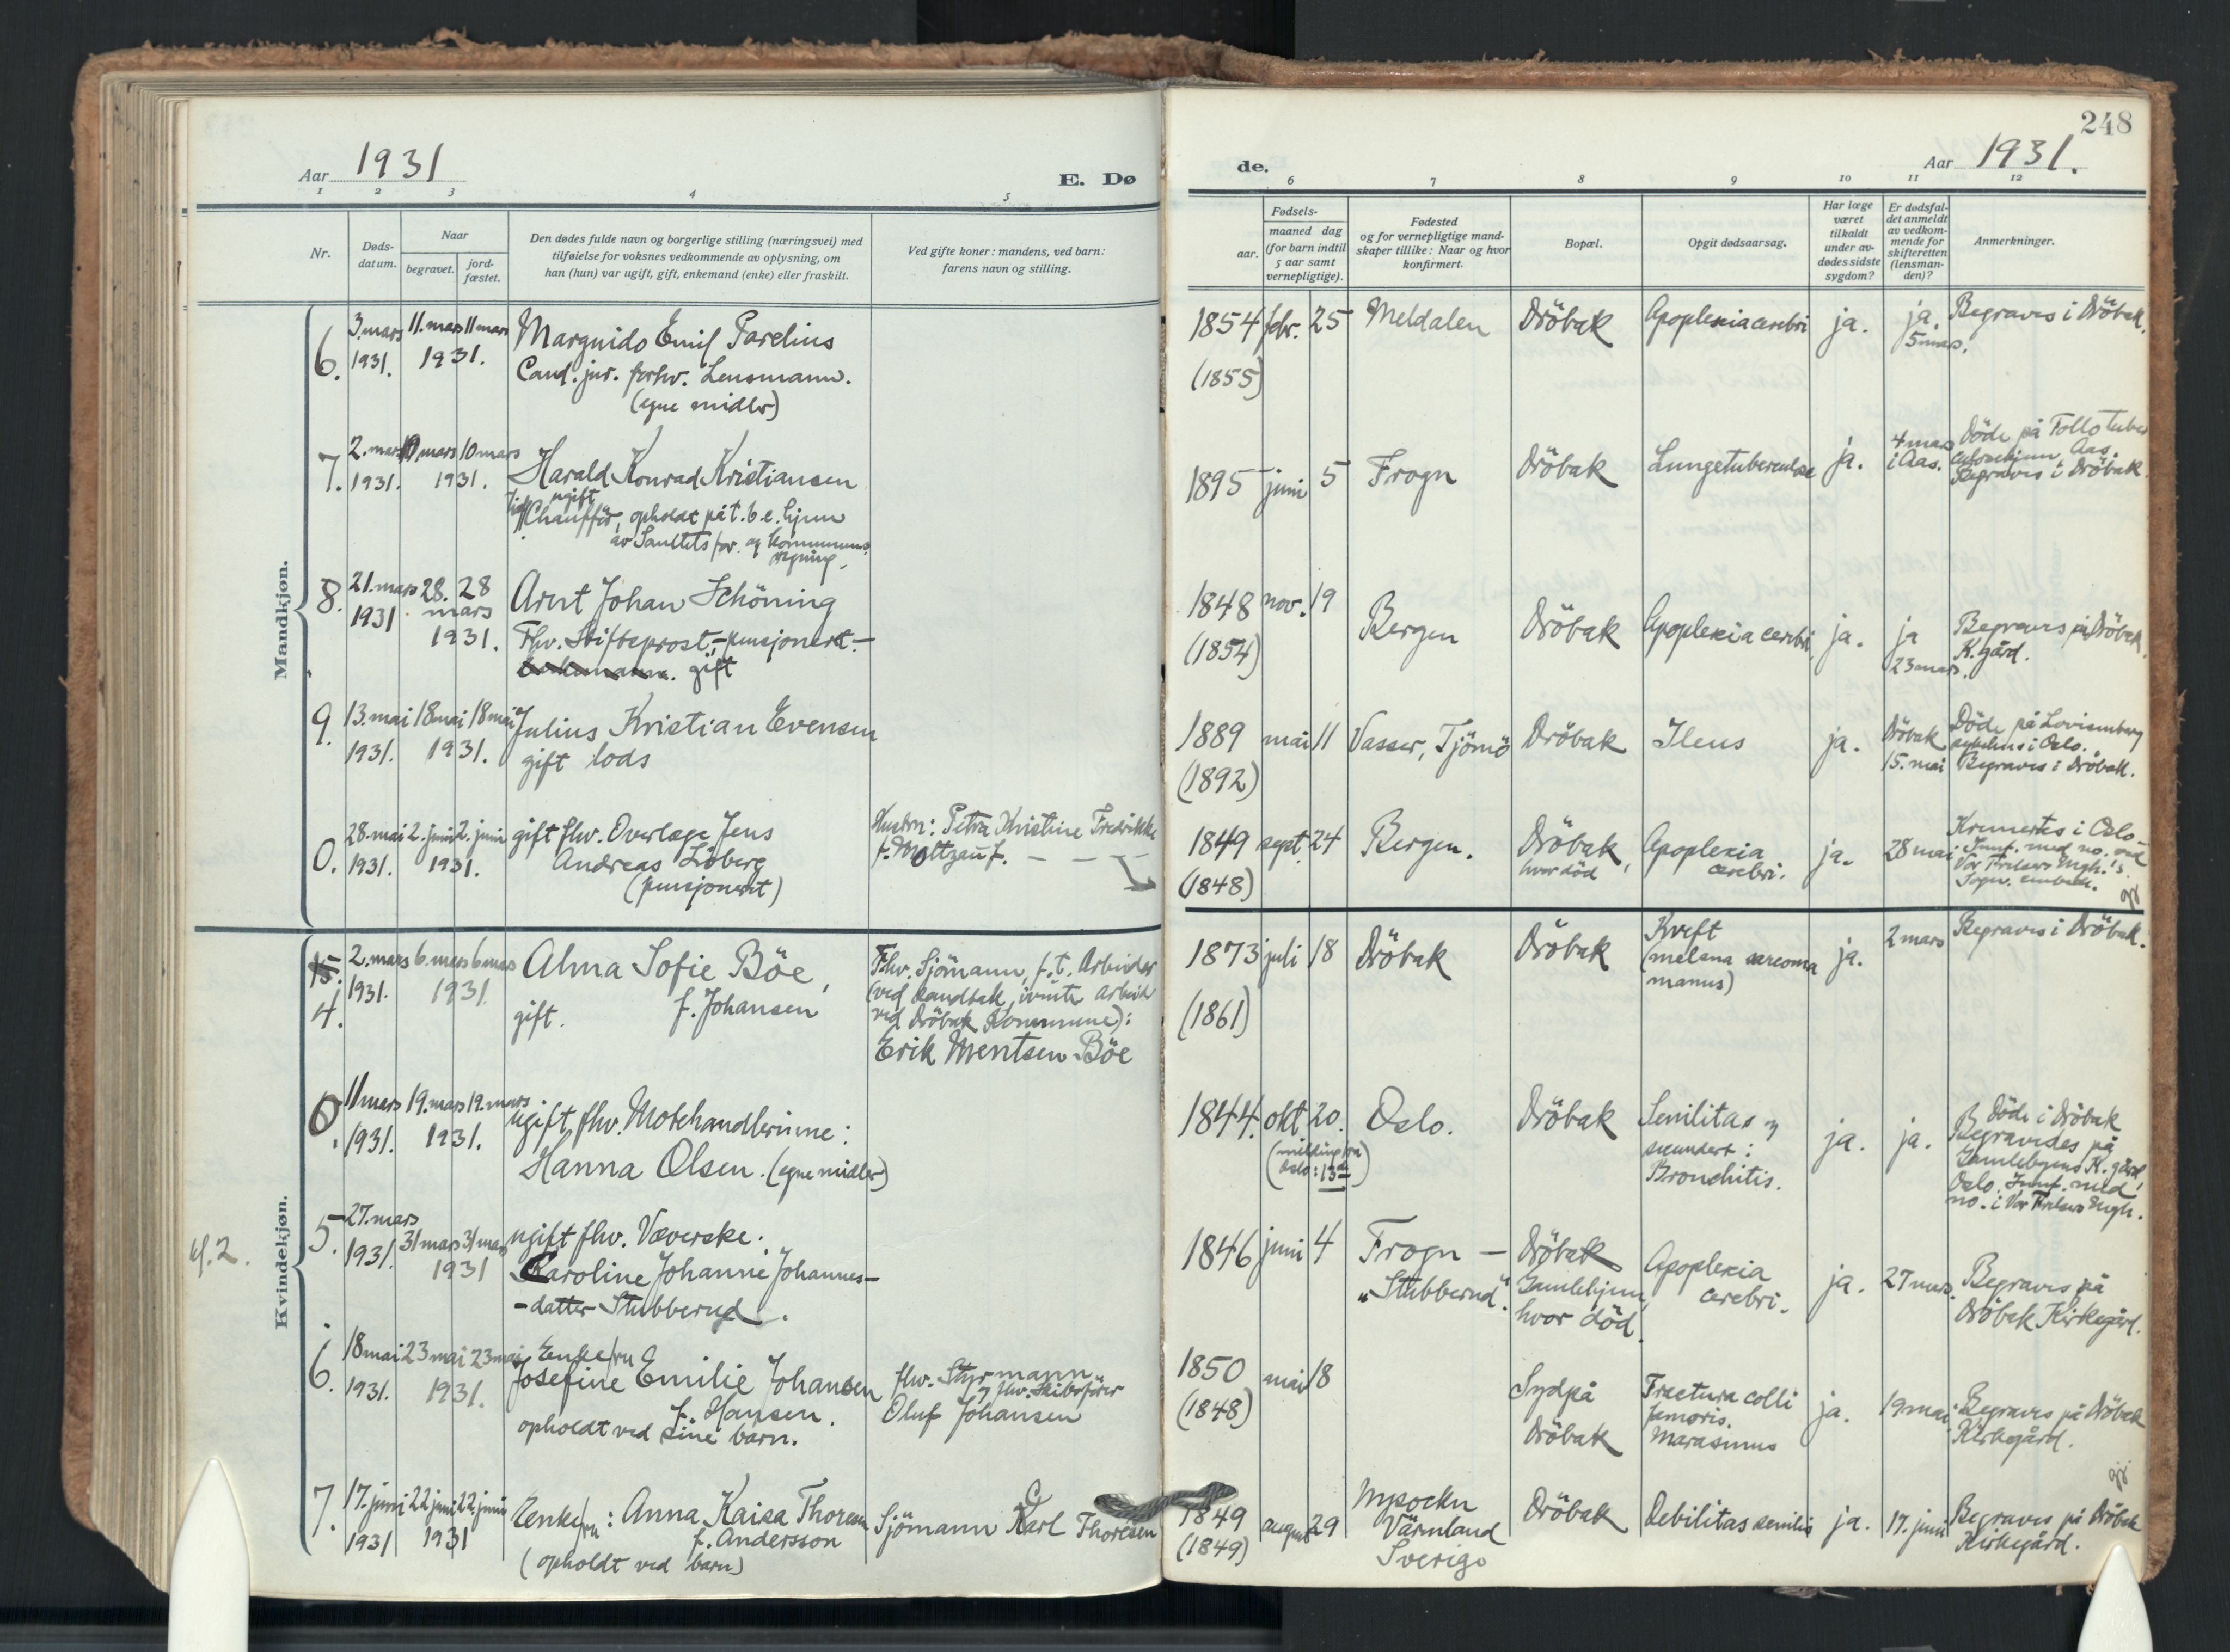 248
Aar 1931
E. Dø
de.
Aar 1931.
1 2 3 4 5 6 7 8 9 10 11 12
Nr.
Døds-
datum.
Naar
begravet.
jord-
fæstet.
Den dødes fulde navn og borgerlige stilling (næringsvei) med
tilføielse for voksnes vedkommende av oplysning, om
han (hun) var ugift, gift, enkemand (enke) eller fraskilt.
Ved gifte koner: mandens, ved barn:
farens navn og stilling.
Fødsels-
aar.
maaned dag
(for barn indtil
5 aar samt
vernepligtige).
Fødested
og for vernepligtige mand-
skaper tillike: Naar og hvor
konfirmert.
Bopæl.
Opgit dødsaarsag.
Har læge
været
tilkaldt
under av-
dødes sidste
sygdom?
Er dødsfal-
det anmeldt
av vedkom-
mende for
skifteretten
(lensman-
den)?
Anmerkninger.
Mandkjøn.
6.
3. mars
1931.
11. mars 11 mars
1931.
Marguido Emil Parelius
Cand. jur. forhv. Lensmann.
(egne midler)
1854 febr. 25
(1855)
Meldalen
Dröbak
Apoplexia cerebri
ja.
ja.
5 mars.
Begraves i Dröbak.
7.
2. mars
1931.
10 mars 10 mars
1931.
Harald Konrad Kristiansen
ugift
Chaufför, opholdt på t.b.c. hjem
av Sanitets for. og Kommunens
regning.
1895 juni 5
Frogn
Dröbak
Lungetuberculose
ja.
4 mars
i Aas.
Döde på Follo tuber
culosehjem, Aas.
Begraves i Dröbak
8.
21. mars
1931
28. 28
mars
1931.
Arnt Johan Schöning
Fhv. Stiftsprost, - pensjonert. -
gift
1848 nov. 19
(1854)
Bergen
Dröbak
Apoplexia cerebri
ja.
ja
23 mars.
Begraves på Dröbak
K. gård.
9.
13. mai
1931.
18 mai 18 mai
1931.
Julius Kristian Evensen
gift lods
1889 mai 11
(1892)
Vasser, Tjömö
Dröbak
Ileus
ja.
Dröbak
15. mai
Döde på Lovisenberg
sykehus i Oslo.
Begraves i Dröbak.
0.
28. mai
1931.
2. juni 2. juni
1931.
gift fhv. Overlæge Jens
Andreas Löberg
(pensjonert)
Hustru: Petra Kristine Fredrikke
f. Moltzau
1849 sept. 24
(1848)
Bergen.
Dröbak,
hvor död
Apoplexia
cerebri.
ja.
28 mai
Kremertes i Oslo.
Innf. med no. ved
Vor Frelsers Mgh.'s
Kvindekjøn.
4.
2. mars
1931.
6. mars 6 mars
1931.
Alma Sofie Böe,
f. Johansen
gift.
Fhv. Sjömann, f. t. Arbeider
ved Dröbak Kommune):
Erik Mentsen Böe
1873 juli 18
(1861)
Dröbak
Dröbak
Kreft
(melana sarcoma
manus)
ja.
2 mars
Begraves i Dröbak.
0.
11 mars
1931.
19. mars 19. mars
1931.
ugift fhv. Motehandlerinne:
Hanna Olsen. (egne midler)
1844. okt 20.
(melding fra
Oslo: 13de)
Oslo.
Dröbak
Senilitas og
secundert:
Bronchitis.
ja.
ja.
Döde i Dröbak
Begravedes på
Gamlebyens K. gård,
Oslo. Innf. med
no. i Vor Frelsers Mgh.
5.
27. mars
1931.
31 mars 31 mars
1931
ugift fhv. Væverske.
Karoline Johanne Johannes-
-datter Stubberud.
1846 juni 4
Frogn -
"Stubberud".
Dröbak
Gamlehjem,
hvor död.
Apoplexia
cerebri.
ja.
27 mars.
Begraves på
Dröbak Kirkegård.
6.
18 mai
1931.
23 mai 23 mai
1931.
Enkefru
Josefine Emilie Johansen
f. Hansen.
opholdt ved sine barn.
fhv. Styrmann
og fhv. Skibsförer
Oluf Johansen
1850 mai 18
(1848)
Sydpå
Dröbak
Fractura colli
femoris.
Marasmus
ja.
19 mai.
Begraves på Dröbak
Kirkegård.
7.
17. juni
1931
22 juni 22 juni
1931
Enkefru: Anna Kaisa Thoresen
f. Andersson
(opholdt ved barn)
Sjömann Karl Thoresen
1849 august 29
(1849)
Värmland
Sverige
Dröbak
Debilitas senilis
ja.
17. juni
Begraves på Dröbak
Kirkegård.